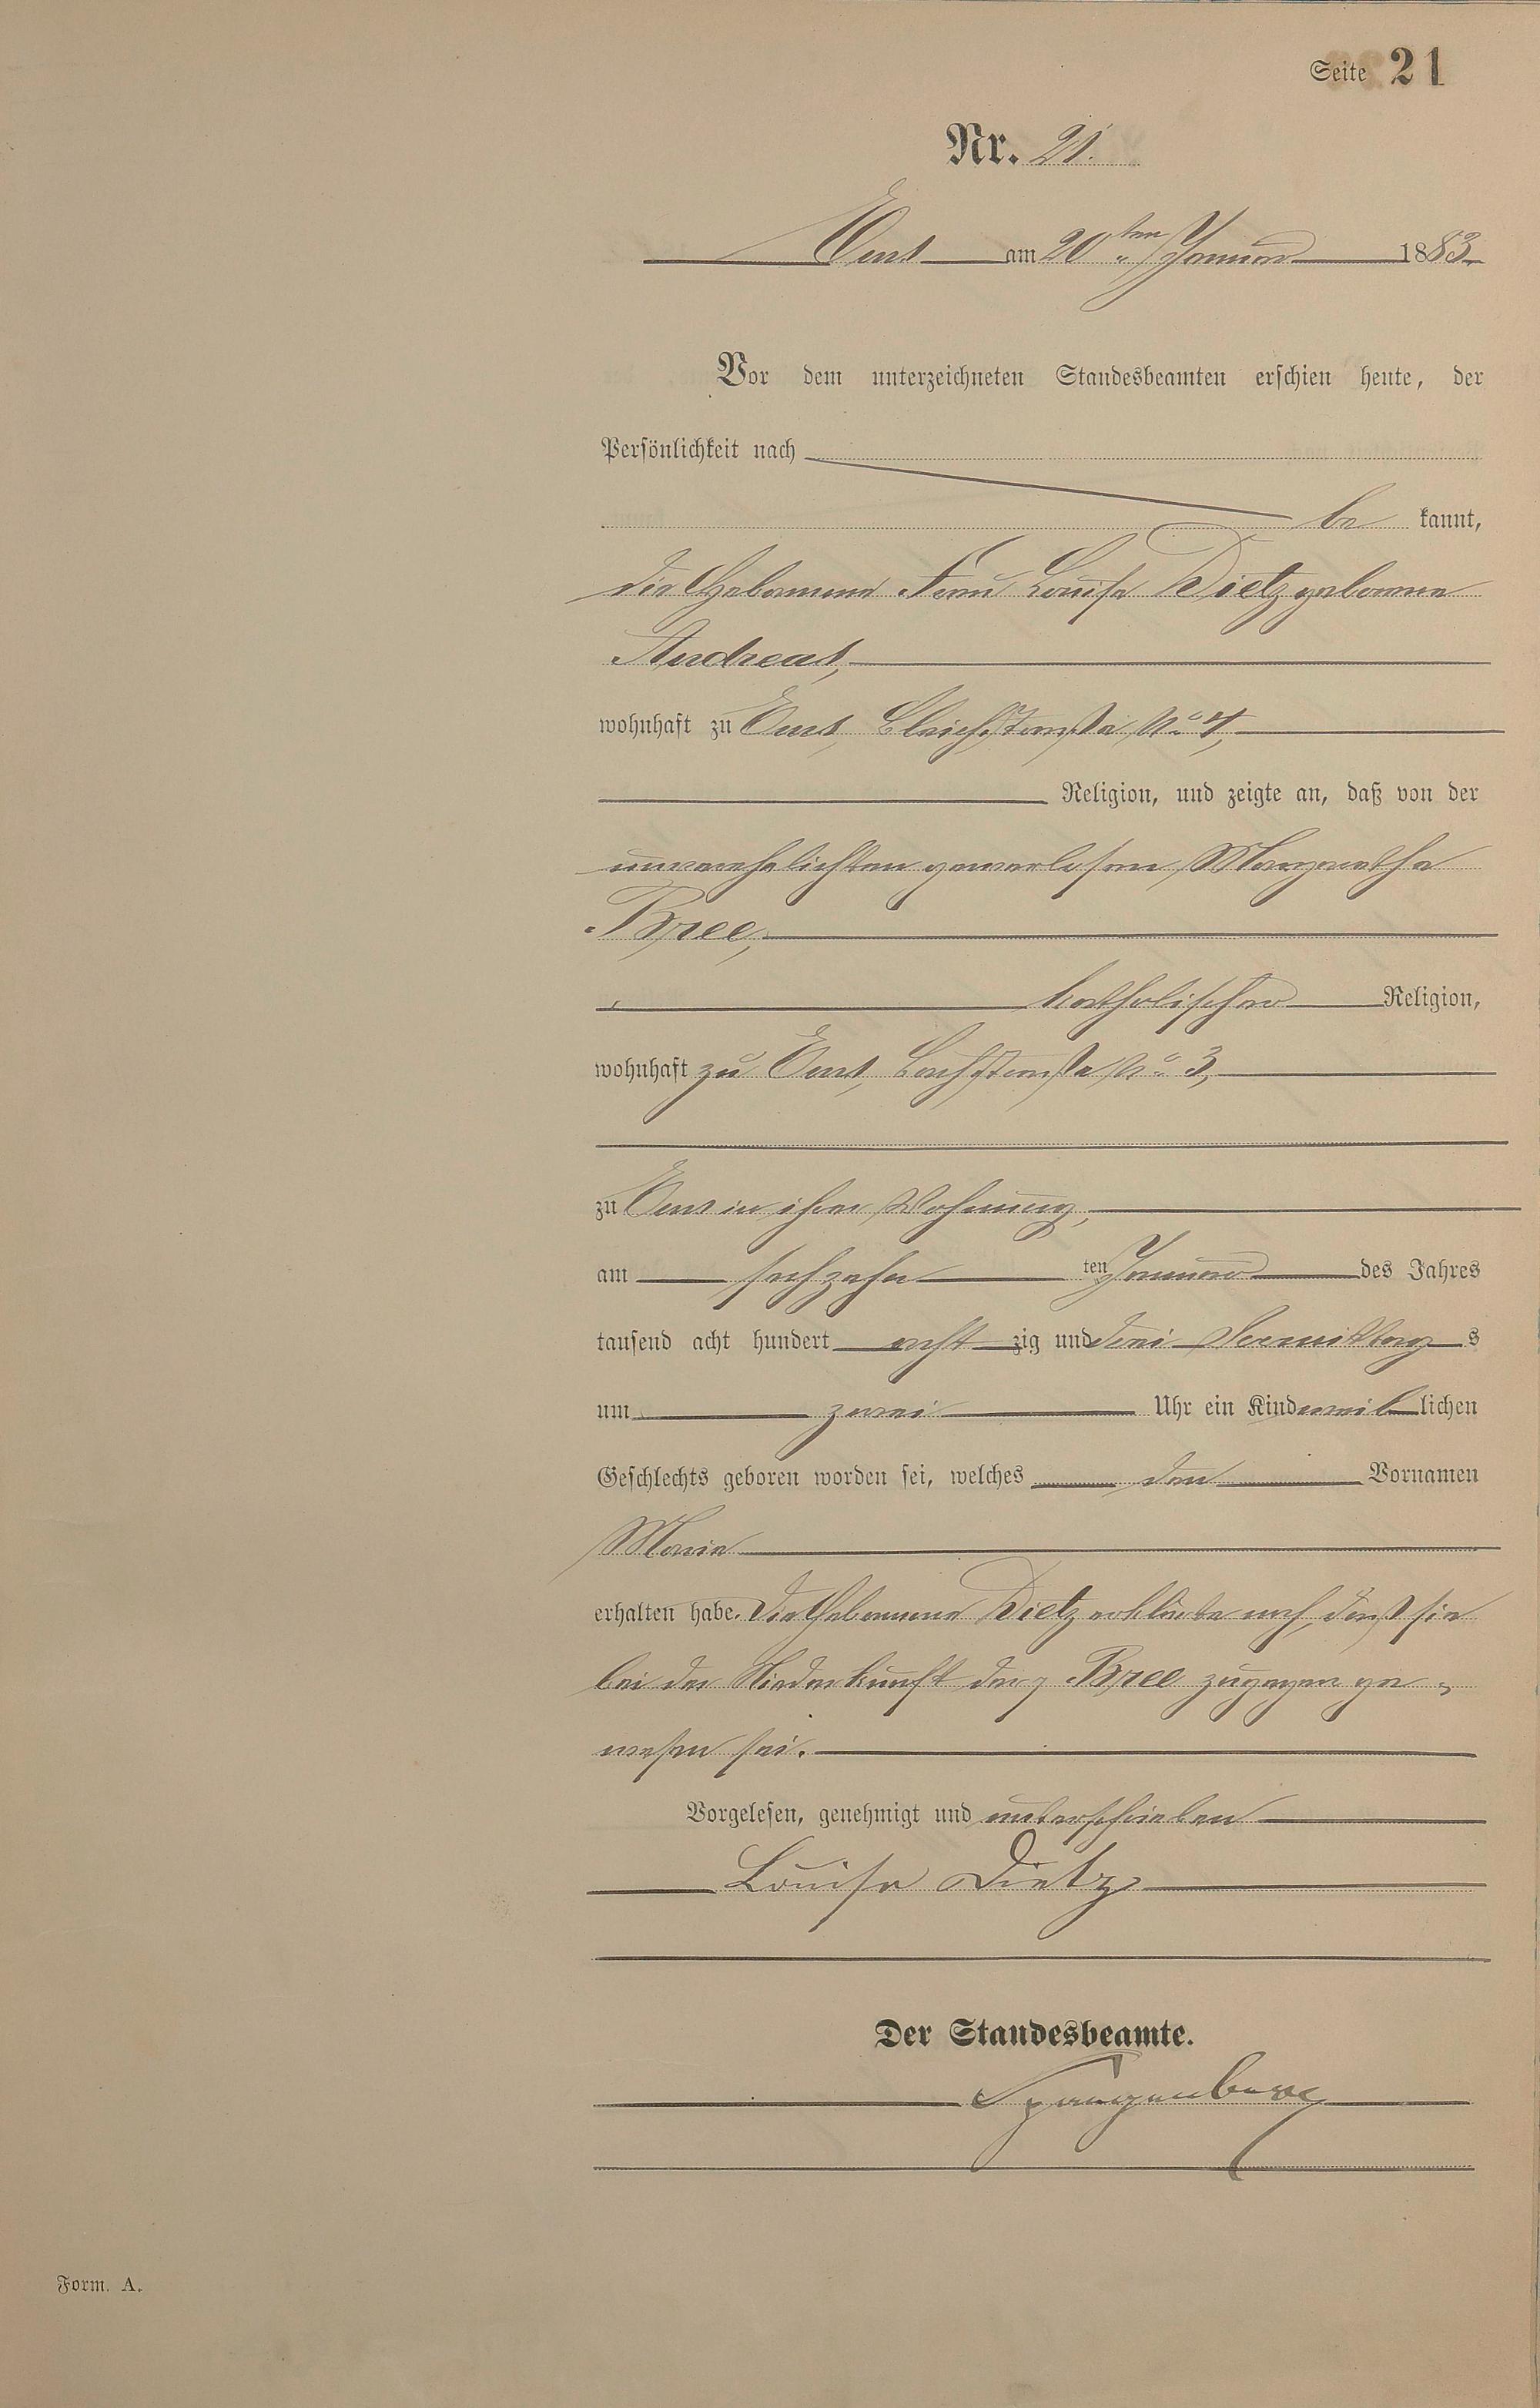 Seite 21
Nr. 21.
Ems am 20ten Januar 1883
Vor dem unterzeichneten Standesbeamten erschien heute, der
Persönlichkeit nach
be kannt,
die Hebamme Frau Louise Dietz geborene
Andreas,
wohnhaft zu Ems, Bleichstraße No 4,
Religion, und zeigte an, daß von der
unverehelichten gewerlosen Margaretha
Bree,
katholischer Religion,
wohnhaft zu Ems, No 3,
zu Ems in ihrer Wohnung,
am sechzehn ten Januar des Jahres
tausend acht hundert acht zig und drei Vormittag s
um zwei Uhr ein Kind weib lichen
Geschlechts geboren worden sei, welches den Vornamen
Maria
erhalten habe. Die Hebamme Dietz erklärte noch, daß sie
bei der Niederkunft der p Bree zugegen ge-
wesen sei.
Vorgelesen, genehmigt und unterschrieben
Louise Dietz
Der Standesbeamte.
Spangenberg
Form. A.